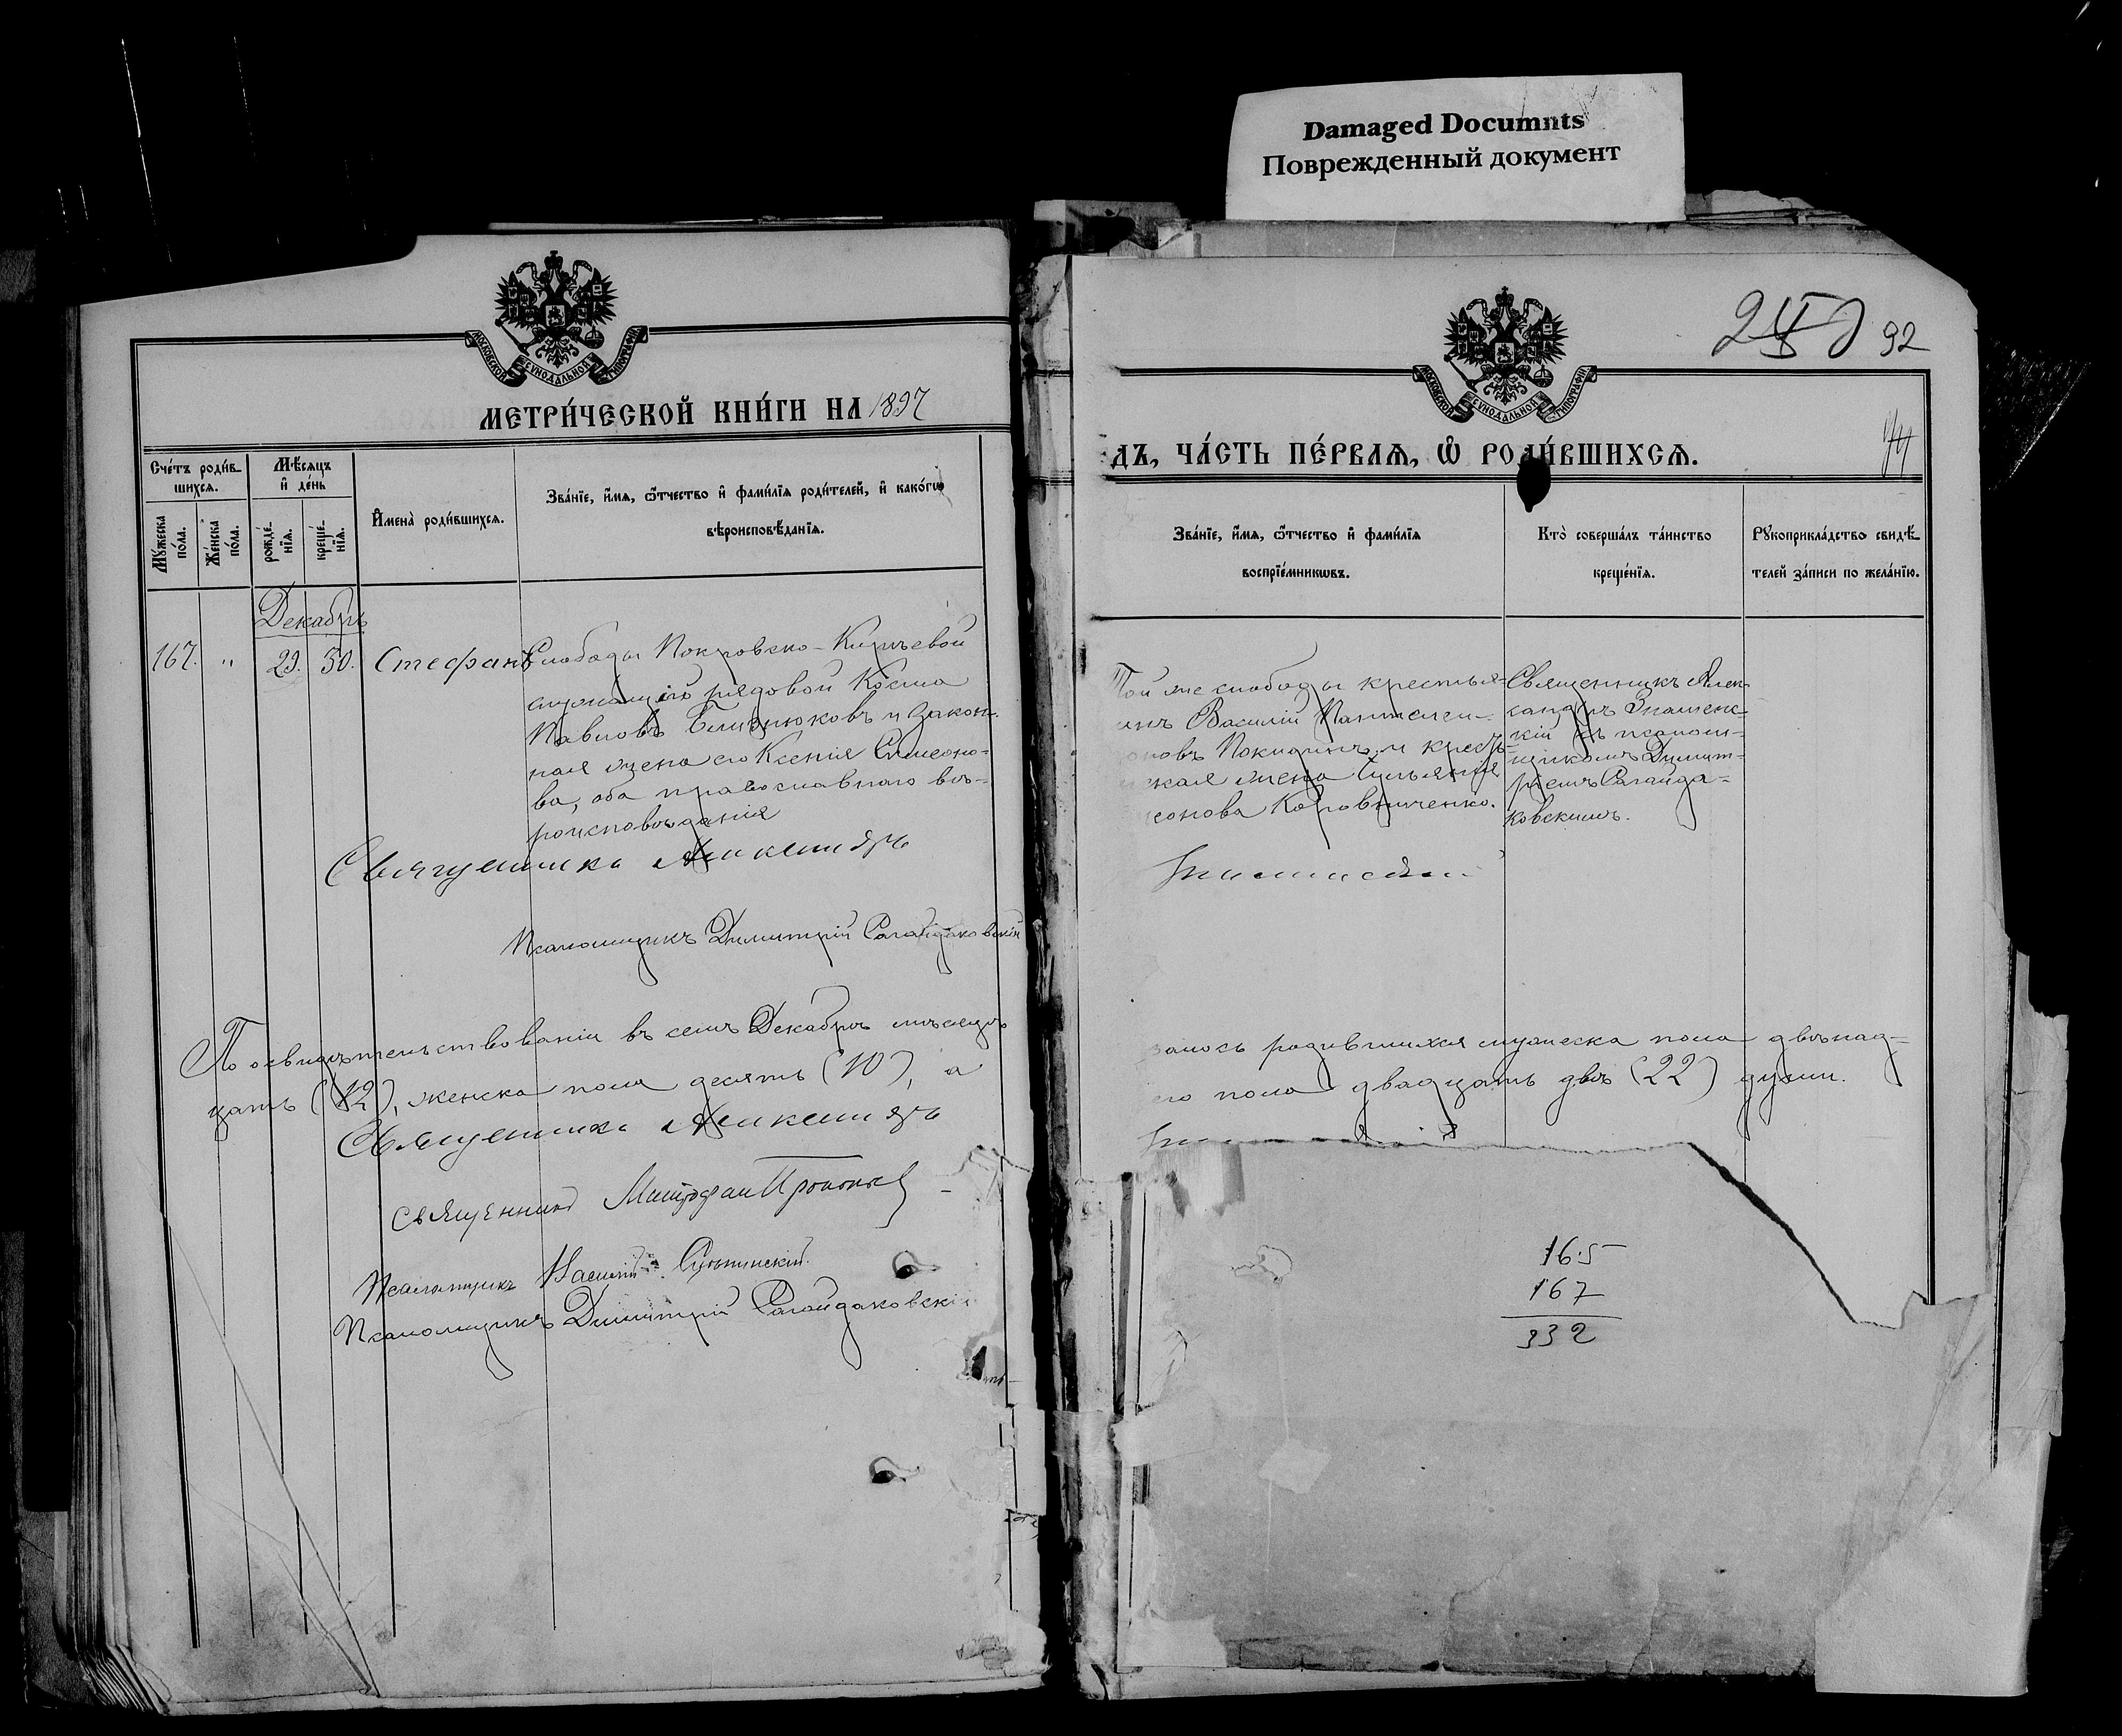 Damaged Documnts
Поврежденный документ
МОСКОВСКОЙ СУНОДАЛЬНОЙ ТИПОГРАФІИ
МЕТРИ́ЧЕСКОЙ КНИ́ГИ НА 1897
Сче́тъ роди́в-
шихсѧ.
Мѣ́сѧцъ
и҆ де́нь
Му́жеска
по́ла.
Же́нска
по́ла.
рожде́-
нїѧ.
креще́-
нїѧ.
И҆мена̀ роди́вшихсѧ.
Зва́нїе, и҆́мѧ, ѻ҆́тчество и҆ фами́лїѧ роди́телей, и҆ како́гѡ
вѣроисповѣ́данїѧ.
Декабрь
167. " 29. 30. Стефанъ
Слободы Покровско-Киръевой
служащій рядовой Косма
Павловъ Близнюковъ и закон-
ная жена его Ксенія Симеоно-
ва, оба православнаго вѣ-
роисповѣданія
Священникъ Александръ
Псаломщикъ Димитрій Сагайдаковскій
По освидѣтельствованіи въ семъ Декабрѣ мѣсяцѣ
цать (12), женска пола десять (10), а
Священникъ Александръ
Священникъ Митрофан Прокопьев
Псаломщикъ Василій
Псаломщикъ Димитрій Сагайдаковскі
92
МОСКОВСКОЙ СУНОДАЛЬНОЙ ТИПОГРАФІИ
ДЪ, ЧА́СТЬ ПЕ́РВАѦ, Ѡ҆ РОДИ́ВШИХСѦ.
Зва́нїе, и҆́мѧ, ѻ҆́тчество и҆ фами́лїѧ
воспрїе́мникѡвъ.
Кто̀ соверша́лъ та́инство
креще́нїѧ.
Рꙋкоприкла́дство свидѣ́-
телей за́писи по жела́нїю.
Той же слободы крестья-
инъ Василій Пантелеи-
оновъ Покидинъ и крест-
нская жена Ульянія
еонова Коровниченко.
Священникъ Алек-
сандръ Знаменс-
кій съ псаломщ-
щикомъ Димит-
ріемъ Сагайда-
ковскимъ.
Знаменскій
залось родившихся мужеска пола двѣнад-
его пола двадцать двѣ (22) души.
165
167
332